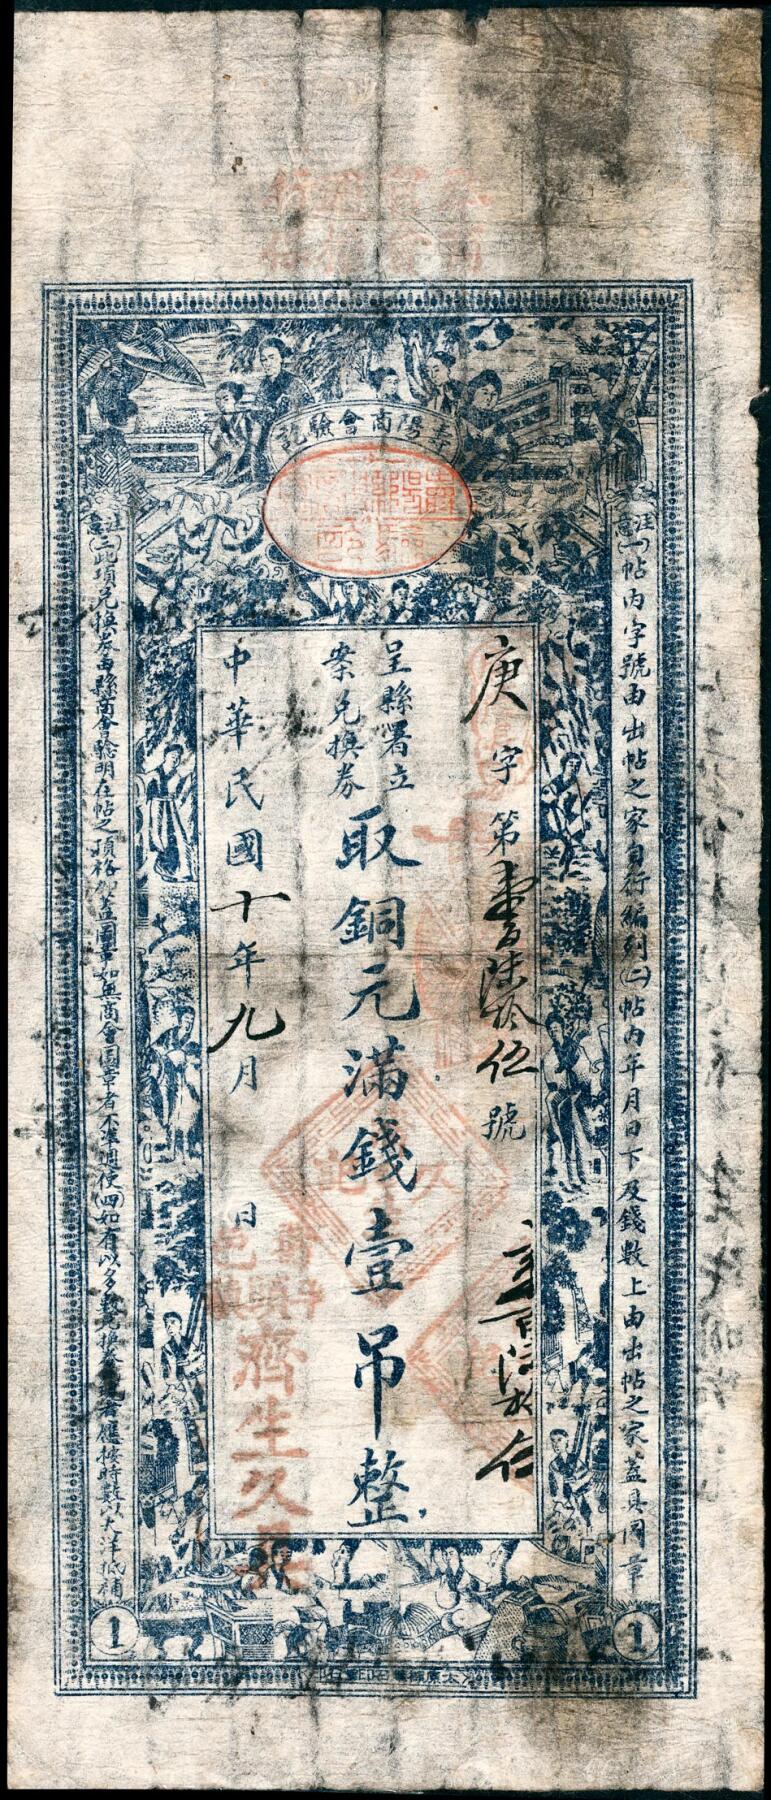 壽陽商會驗訖
注意(一)帖內字號由出帖之家自行編列(二)帖內年月日下及錢數上由出帖之家蓋具圖章
庚字第壹百陸拾伍號
呈縣署立
案兌換券
取銅元滿錢壹吊整
中華民國十年九月 日
濟生久
注意(三)此項兌換券由縣商會驗明在帖之頂格加蓋圖章如無商會圖章者不準通使(四)如有以多數兌換券
應按時數以大洋抵補
1
1